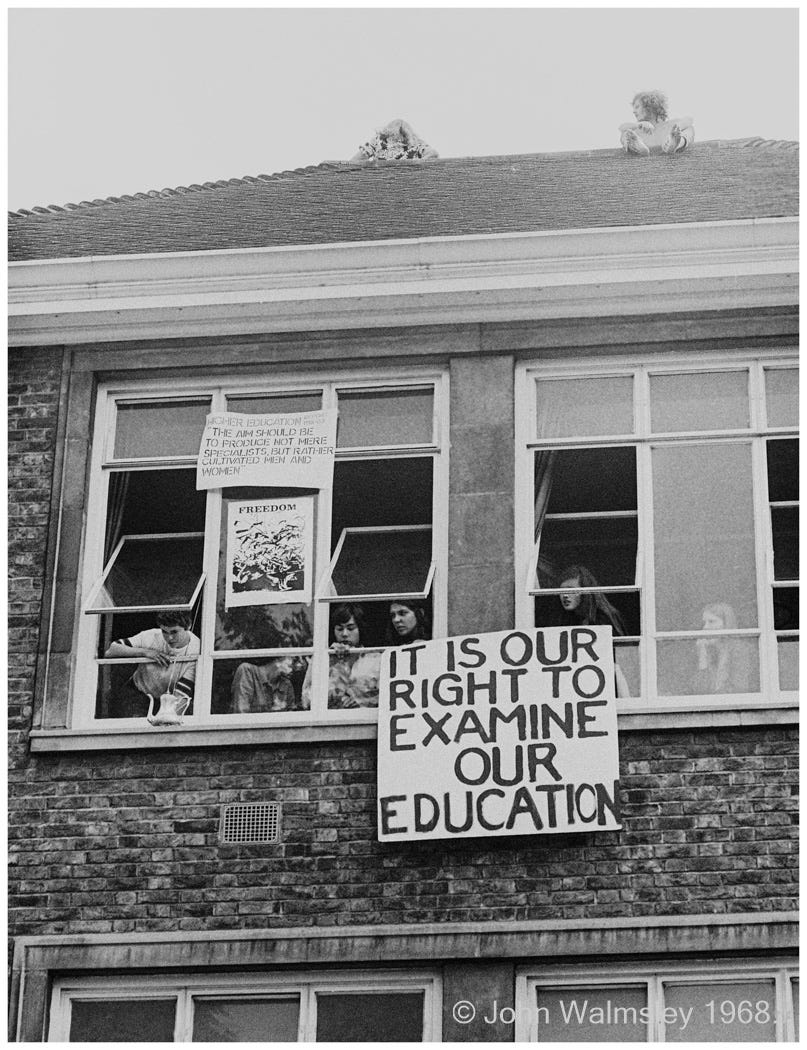 HIGHER EDUCATION
"THE AIM SHOULD BE
TO PRODUCE NOT MERE
SPECIALISTS, BUT RATHER
CULTIVATED MEN AND
WOMEN"
FREEDOM
IT IS OUR
RIGHT TO
EXAMINE
OUR
EDUCATION
© John Walmsley 1968.